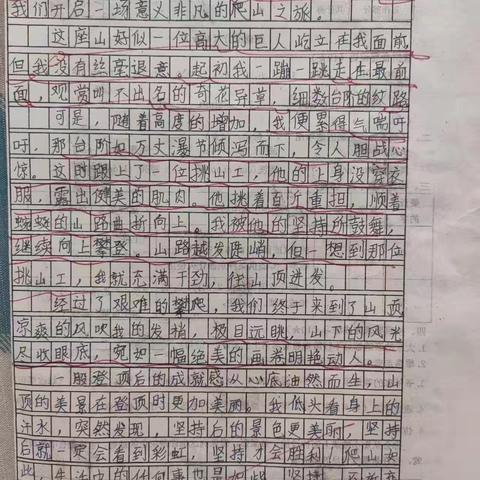 我们开启一场意义非凡的爬山之旅。
这座山好似一位高大的巨人屹立在我面前,
但我没有丝毫退意。起初我一蹦一跳走在最前
面,观赏叫不出名的奇花异草,细数台阶的纹路
可是,随着高度的增加,我便累得气喘吁
吁,那台阶如万丈瀑布倾泻而下,令人胆战心
惊。这时跟上了一位挑山工,他的上身没穿衣
服,露出健美的肌肉。他挑着百斤重担,顺着
蜿蜒的山路曲折向上。我被他的坚持所鼓舞,
继续向上攀登。山路越发陡峭,但一想到那位
挑山工,我就充满干劲,往山顶进发。
经过了艰难的攀爬,我们终于来到了山顶
凉爽的风吹我的发梢,极目远眺,山下的风光
尽收眼底,宛如一幅绝美的画卷明艳动人。
一股登顶后的成就感从心底油然而生,山
顶的美景在登顶时更加美丽。我低头看身上的
汗水,突然发现,坚持后的景色更美丽,坚持
后就一定会看到彩虹,坚持才会胜利!爬山如
此,生活中的任何事也是如此,坚持